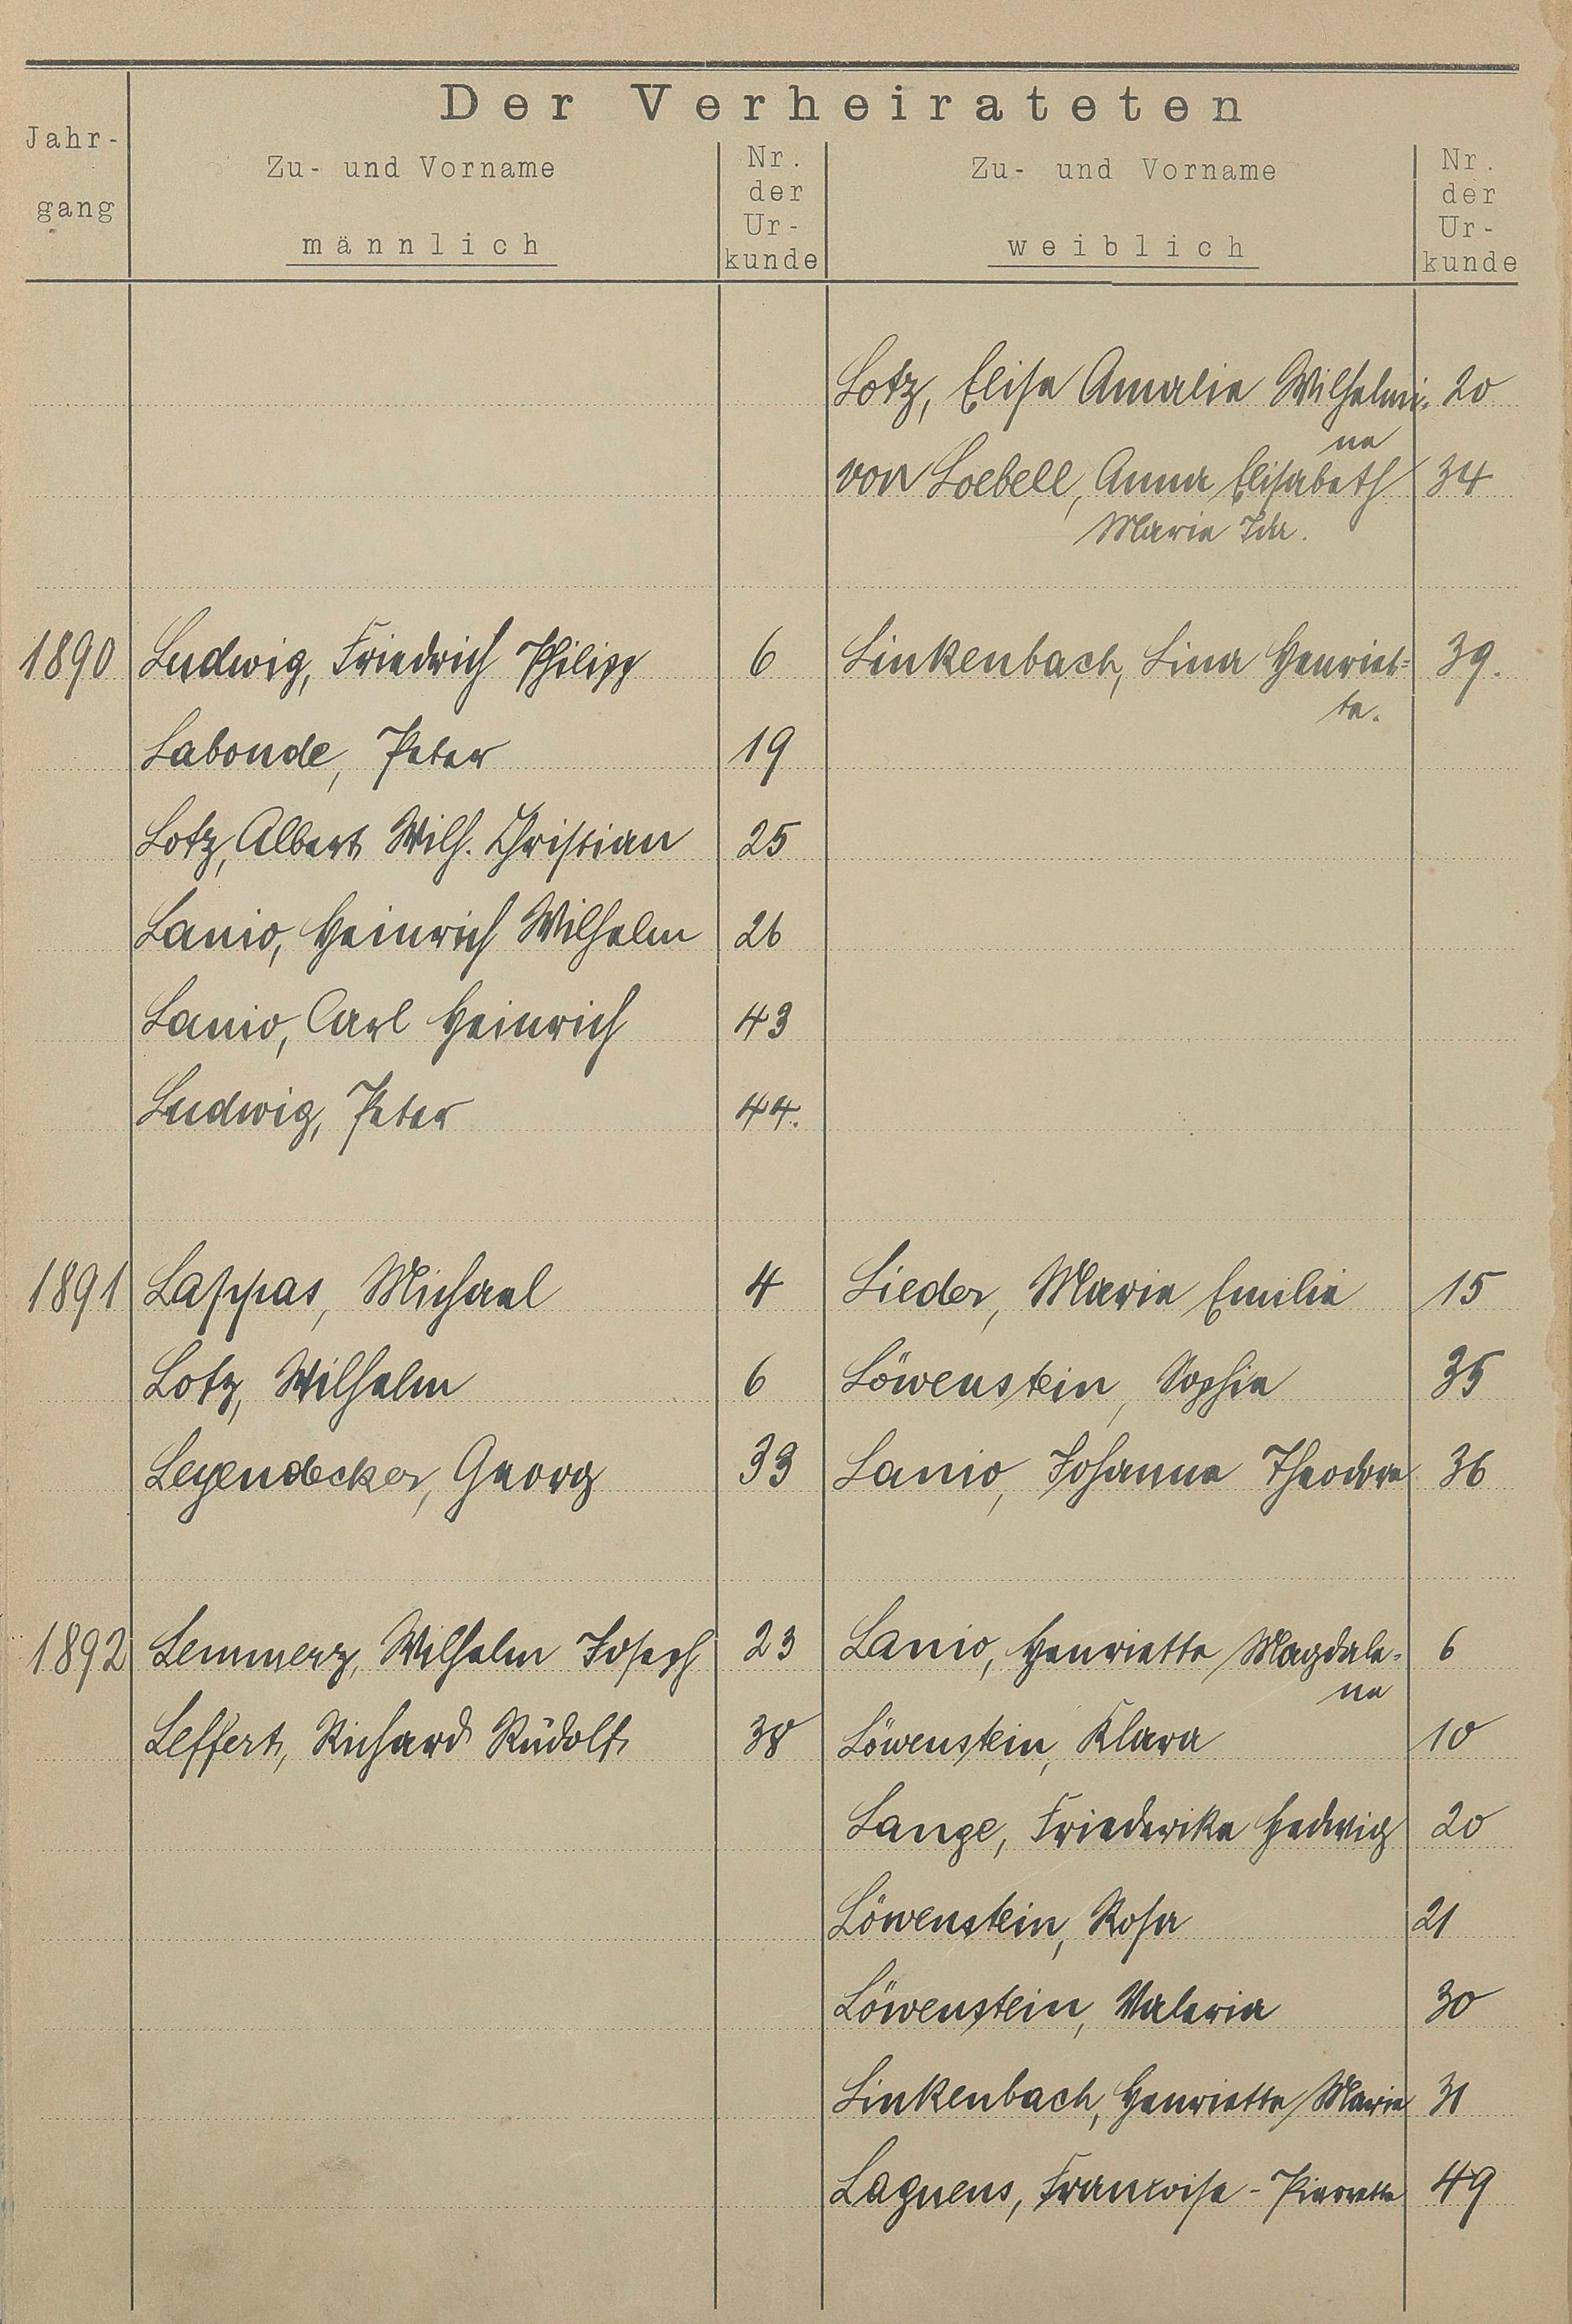 Der Verheirateten
Jahr-
gang
Zu- und Vorname
männlich
Nr.
der
Ur-
kunde
Zu- und Vorname
weiblich
Nr.
der
Ur-
kunde
Lotz, Elise Amalie Wilhelmi- 20
ne
von Loebell, Anna Elisabeth 34
Marie Ida.
1890 Ludwig, Friedrich Philipp 6 Linkenbach, Lina Henriet= 39.
te.
Labonde, Peter 19
Lotz, Albert Wilh. Christian 25
Lanio, Heinrich Wilhelm 26
Lanio, Carl Heinrich 43
Ludwig, Peter 44.
1891 Lappas, Michael 4 Lieder, Marie Emilie 15
Lotz, Wilhelm 6 Löwenstein, Sophie 35
Leyendecker, Georg 33 Lanio, Johanna Theodore 36
1892 Lemmerz, Wilhelm Joseph 23 Lanio, Henriette Magdale- 6
ne
Leffert, Richard Rudolf 38 Löwenstein, Klara 10
Lange, Friederike Hedwig 20
Löwenstein, Rosa 21
Löwenstein, Valeria 30
Linkenbach, Henriette Marie 31
Laguens, Francoise-Pierrette 49